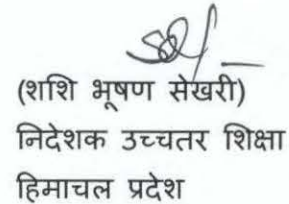 (शशि भूषण सेखरी)
निदेशक उच्चतर शिक्षा
हिमाचल प्रदेश